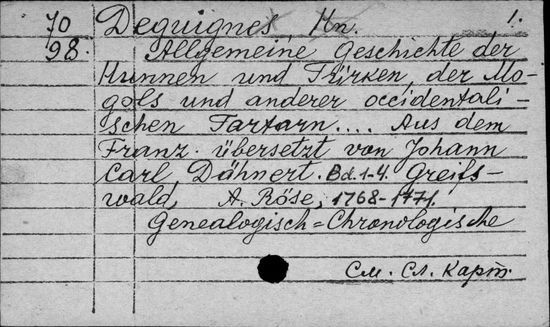 70 Deguignes Hn. 1.
98. Allgemeine Geschichte der
Hunnen und Türken, der Mo-
gols und anderer occidentali-
schen Tartarn.... Aus dem
Franz. übersetzt von Johann
Carl Dähnert. Bd. 1-4. Greifs-
wald, A. Röse, 1768-1771.
Genealogisch=Chronologische
См. сл. карт.